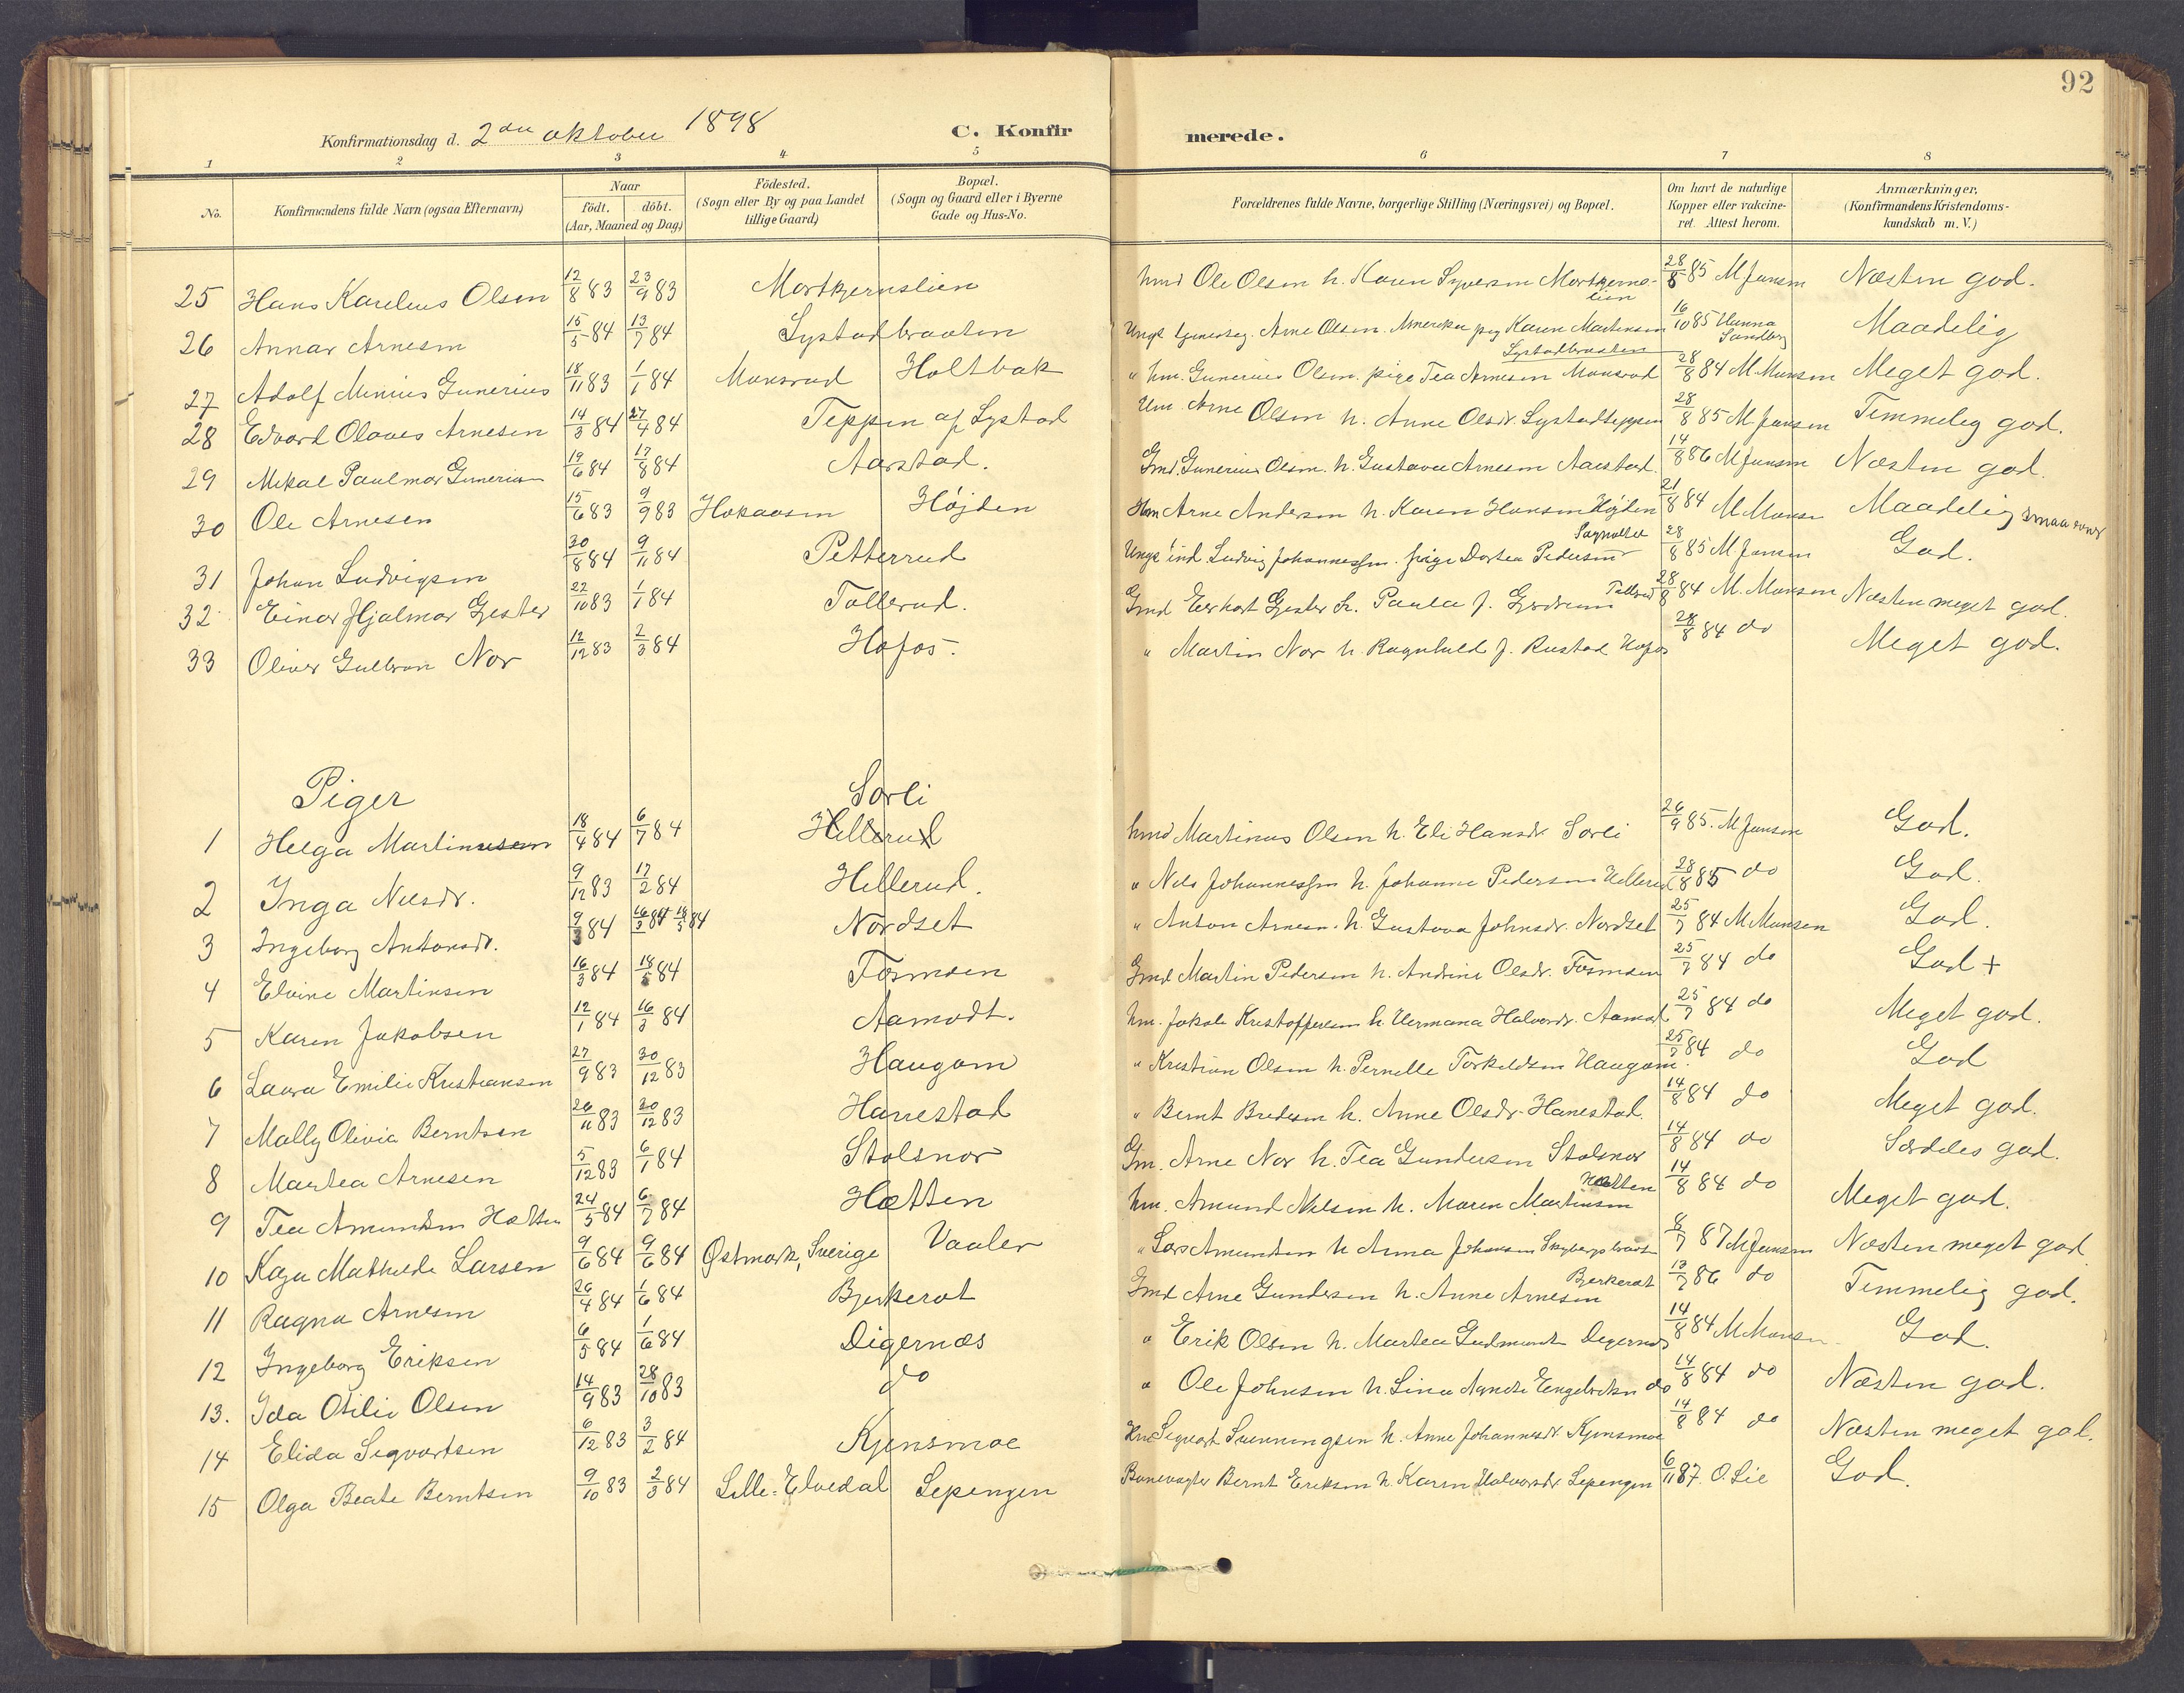 92
Konfirmationsdag d. 2den oktober 1898 C. Konfirmerede.
1 2 3 4 5 6 7 8
No. Konfirmandens fulde Navn (ogsaa Efternavn) Naar födt. döbt. (Aar, Maaned og Dag) Födested. (Sogn eller By og paa Landet tillige Gaard) Bopæl. (Sogn og Gaard eller i Byerne Gade og Hus-No. Forældrenes fulde Navne, borgerlige Stilling (Næringsvei) og Bopæl. Om havt de naturlige Kopper eller vakcineret. Attest herom. Anmærkninger, (Konfirmandens Kristendomskundskab m. V.)
25 Hans Karelius Olsen 12/8 83 23/9 83 Mortkjernslien hmd Ole Olsen h. Karen Syversen Mortkjernslien 28/8 85 M Jensen Næsten god.
26 Annar Arnesen 15/5 84 13/7 84 Lystadbraaten Arne Olsen. Amerika pig Karen Martinsen Lystadbraaten 16/10 85 Hanna Sandberg Maadelig
27 Adolf Minius Gunerius 18/11 83 1/1 84 Monsrud Holtbak " hm. Gunerius Olsen. pige Tea Arnesen Monsrud 28/8 84 M Monsen Meget god.
28 Edvard Olaves Arnesen 14/3 84 27/4 84 Teppen af Lystad Hm Arne Olsen h. Anne Olsdr. Lystadteppen 28/8 85 M Jensen Temmelig god.
29 Mikal Paulmar Gunerius 19/6 84 17/8 84 Aarstad. Gmd. Gunerius Olsen. h. Gustava Arnesen Aarstad. 14/8 86 M Jensen Næsten god
30 Ole Arnesen 15/6 83 9/9 83 Hokaasen Højden Hm Arne Andersen h. Karen Hansen Højden 21/8 84 M Monsen Maadelig smaa evner
31 Johan Ludvigsen 30/8 84 9/11 84 Petterrud Ungk. ind. Ludvig Johannessen. pige Dortea Pedersen 28/8 85 M Jensen God.
32 Einar Hjalmar Gjester 22/10 83 1/1 84 Tollerud. Gmd Gjester h. Paula f. Tollerud 28/8 84 M. Monsen Næsten meget god
33 Oliver Gulbran Nor 12/12 83 2/3 84 Hofos. " Martin Nor h. Ragnhild f. Rustad Hofos 28/8 84 do Meget god.
Piger
1 Helga Martinusen 18/4 84 6/7 84 Sorli Hellerud hmd Martinus Olsen h. Eli Hansdr. Sorli 26/9 85. M Jensen God.
2 Inga Nilsdr. 9/12 83 17/2 84 Hellerud. " Nils Johannessen h. Johanne Pedersen Hellerud 28/8 85 do God.
3 Ingeborg Antonsdr. 9/3 84 16/3 84 18/5 84 Nordset " Anton Arnesen. h. Gustava Johnsdr. Nordset 25/7 84 M Monsen God.
4 Elvine Martinsen 16/3 84 18/5 84 Tosmoen Gmd Martin Pedersen h. Andrine Olsdr. Tosmoen 25/7 84 do God +
5 Karen Jakobsen 12/1 84 16/3 84 Aamodt. hm. Jakob Kristoffersen h. Hermana Halvorsdr. Aamodt 25/7 84 do Meget god.
6 Laura Emilie Kristiansen 27/9 83 30/12 83 Haugom " Kristian Olsen h. Pernelle Torkeldsen Haugom. 25/7 84 do God
7 Mally Olivia Berntsen 26/11 83 30/12 83 Harrestad " Bernt Bredesen h. Anne Olsdr. Hanestad. 14/8 84 do Meget god.
8 Martea Arnesen 5/12 83 6/1 84 Stolsnor Gm. Arne Nor h. Tea Gundersen Stolsnor 14/8 84 do Særdeles god.
9 Tea Amundsen Hætten 24/5 84 6/7 84 Hætten hm. Amund Nilsen h. Maren Martinsen Hætten 14/8 84 do Meget god.
10 Kaja Mathilde Larsen 9/6 84 9/6 84 Østmark, Sverige Vaaler " Lars Amundsen h Anna Johansen 8/7 87 M Jensen Næsten meget god
11 Ragna Arnesen 26/4 84 1/6 84 Bjerkerot Gmd Arne Gundersen h. Anne Arnesen Bjerkerot 13/7 86 do Temmelig god.
12 Ingeborg Eriksen 6/5 84 1/6 84 Digernæs " Erik Olsen h. Martea Gudmundr Digernæs 14/8 84 M Monsen God.
13. Ida Otilie Olsen 14/9 83 28/10 83 do " Ole Johnsen h. Lina Agnete Engebretsen do 14/8 84 do Næsten god.
14 Elida Sigvartsen 6/12 83 3/2 84 Kjensmoe Hm Sigvart Svenningsen h. Anne Johannesdr. Kjensmoe 14/8 84 do Næsten meget god.
15 Olga Beate Berntsen 9/10 83 2/3 84 Lille-Elvedal Sepengen Banevogter Bernt Eriksen h. Karen Halvorsdr. Sepengen 6/11 87. O. Lie God.